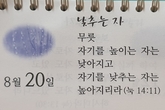 낮추는 자
무릇
자기를 높이는 자는
낮아지고
자기를 낮추는 자는
높아지리라 (눅 14:11)
8월 20일